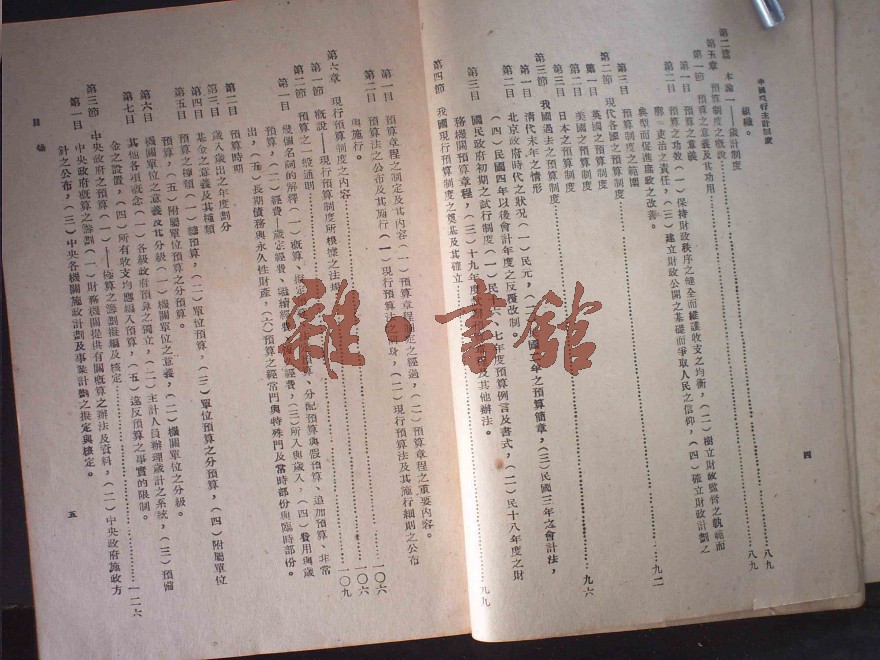 中國現行主計制度
四
組織。
第二篇 本論一——歲計制度……八九
第五章 預算制度之概說……八九
第一節 預算之意義及其功用
第一目 預算之意義
第二目 預算之功效(一)保持財政秩序之健全而維護收支之均衡,(二)樹立財政監督之軌範而
吏治之責任,(三)建立財政公開之基礎而爭取人民之信仰,(四)確立財政計劃之
典型而促進庶政之改善。
第三目 預算制度之範圍
第二節 現代各國之預算制度……九二
第一目 英國之預算制度
第二目 美國之預算制度
第三目 日本之預算制度
第三節 我國過去之預算制度……九六
第一目 清代末年之情形
第二目 北京政府時代之狀況(一)民元,(二)民國三年之預算簡章,(三)民國三年之會計法,
(四)民國四年以後會計年度之反覆改制。
第三目 國民政府初期之試行制度(一)民十六、七年度預算例言及書式,(二)民十八年度之財
務機關預算章程,(三)十九年度及其他辦法。
第四節 我國現行預算制度之奠基及其確立……九九
第一目 預算章程之制定及其內容(一)預算章程制定之經過,(二)預算章程之重要內容。
第二目 預算法之公布及其施行(一)現行預算法之前身,(二)現行預算法及其施行細則之公布
與施行。
第六章 現行預算制度之內容……一〇六
第一節 概說——現行預算制度所根據之法規……一〇六
第二節 預算之一般通則……一〇九
第一目 幾個名詞的解釋(一)概算、擬定預算、分配預算與假預算、追加預算、非常
預算,(二)經費—歲定經費、繼續經費、經費,(三)所入與歲入,(四)費用與歲
出,(五)長期債務與永久性財產,(六)預算之經常門與特殊門及常時部份與臨時部份。
第二目 預算時期
第三目 歲入歲出之年度劃分
第四目 基金之意義及其種類
第五目 預算之種類(一)總預算,(二)單位預算,(三)單位預算之分預算,(四)附屬單位
預算,(五)附屬單位預算之分預算。
第六目 機關單位之意義及其分級(一)機關單位之意義,(二)機關單位之分級。
第七目 其他各項概念(一)各級政府預算之獨立,(二)主計人員辦理歲計之系統,(三)預備
金之設置,(四)所有收支均應編入預算,(五)違反預算之事實的限制。
第三節 中央政府之預算(一)——概算之籌劃擬編及核定……一二六
第一目 中央政府概算之籌劃(一)財務機關提供有關概算之辦法及資料,(二)中央政府施政方
針之公布,(三)中央各機關施政計劃及事業計劃之擬定與核定。
目錄
五
雜·書館